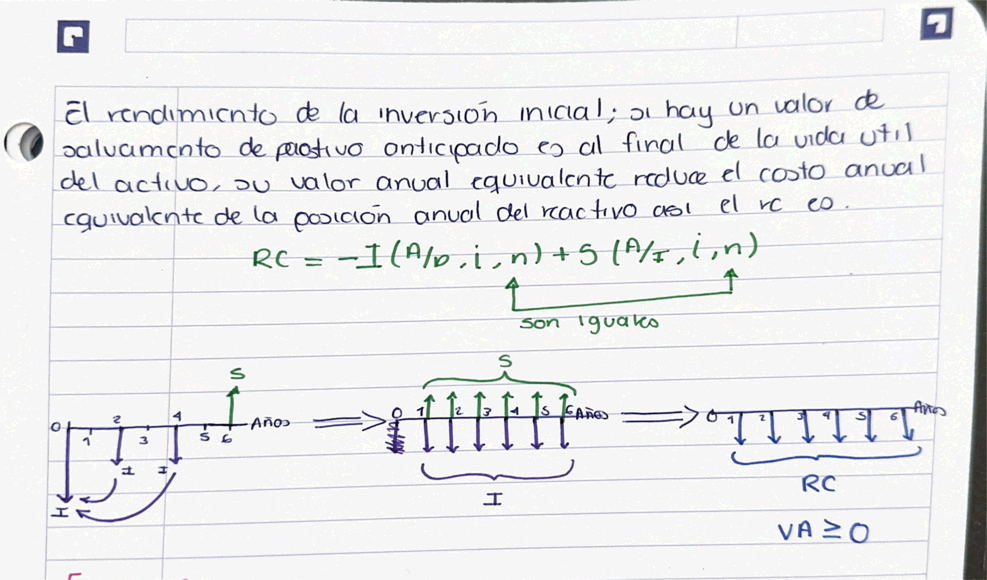 El rendimiento de la inversión inicial; si hay un valor de
salvamento de positivo anticipado es al final de la vida util
del activo, su valor anual equivalente reduce el costo anual
equivalente de la posición anual del reactivo asi el rc es.
RC = -I (A/p, i, n) + S (A/I, i, n)
son iguales
S
0 1 2 3 4 5 6 Años
I I I
S
0 1 2 3 4 5 6 Años
I
0 1 2 3 4 5 6 Años
RC
VA ≥ 0